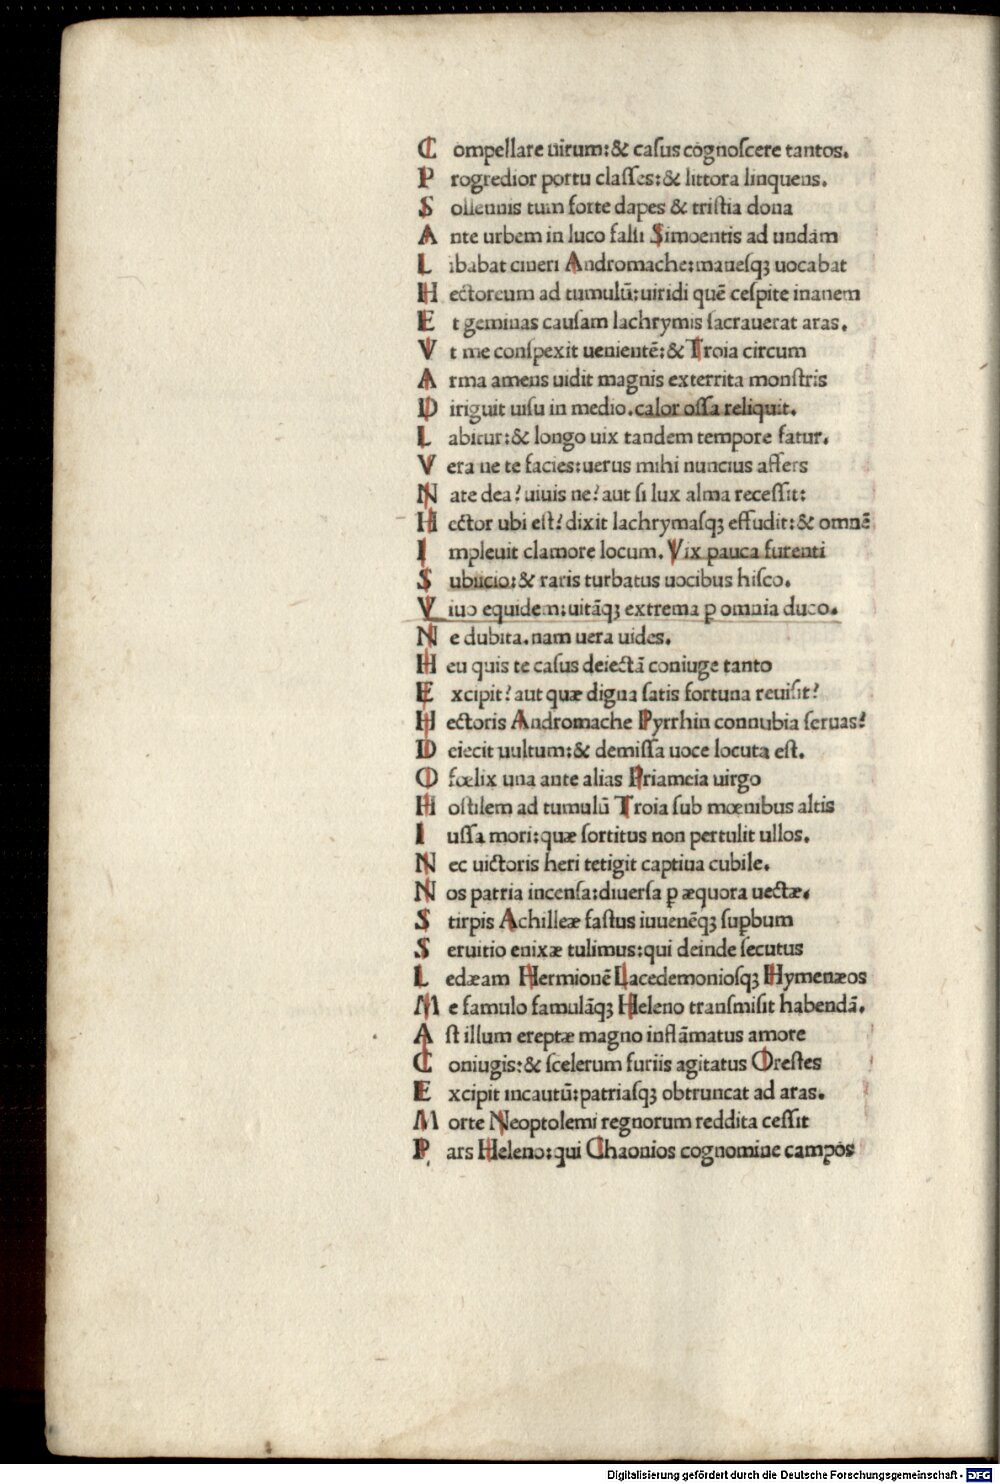 C ompellare uirum:& caſus cognoſcere tantos.
P rogredior portu claſſes:& littora linquens.
S ollennis tum forte dapes & triſtia dona
A nte urbem in luco falſi Simoentis ad undam
L ibabat cineri Andromache:maneſqꝫ uocabat
H ectoreum ad tumulū:uiridi quē ceſpite inanem
E t geminas cauſam lachrymis ſacrauerat aras.
V t me conſpexit uenientē:& Troia circum
A rma amens uidit magnis exterrita monſtris
D iriguit uiſu in medio.calor oſſa reliquit.
L abitur:& longo uix tandem tempore fatur.
V era ne te facies:uerus mihi nuncius affers
N ate dea? uiuis ne? aut ſi lux alma receſſit:
H ector ubi eſt? dixit lachrymaſqꝫ effudit:& omnē
I mpleuit clamore locum. Vix pauca furenti
S ubiicio:& raris turbatus uocibus hiſco.
V iuo equidem:uitāqꝫ extrema ꝑ omnia duco.
N e dubita.nam uera uides.
H eu quis te caſus deiectā coniuge tanto
E xcipit? aut quæ digna ſatis fortuna reuiſit?
H ectoris Andromache Pyrrhin connubia ſeruas?
D eiecit uultum:& demiſſa uoce locuta eſt.
O fœlix una ante alias Priameia uirgo
H oſtilem ad tumulū Troia ſub mœnibus altis
I uſſa mori:quæ ſortitus non pertulit ullos.
N ec uictoris heri tetigit captiua cubile.
N os patria incenſa:diuerſa ꝑ æquora uectæ.
S tirpis Achilleæ faſtus iuuenēqꝫ ſuꝑbum
S eruitio enixæ tulimus:qui deinde ſecutus
L edæam Hermionē Lacedemonioſqꝫ Hymenæos
M e famulo famulāqꝫ Heleno tranſmiſit habendā.
A ſt illum ereptæ magno inflāmatus amore
C oniugis:& ſcelerum furiis agitatus Oreſtes
E xcipit incautū:patriaſqꝫ obtruncat ad aras.
M orte Neoptolemi regnorum reddita ceſſit
P ars Heleno:qui Chaonios cognomine campos
Digitalisierung gefördert durch die Deutsche Forschungsgemeinschaft - DFG